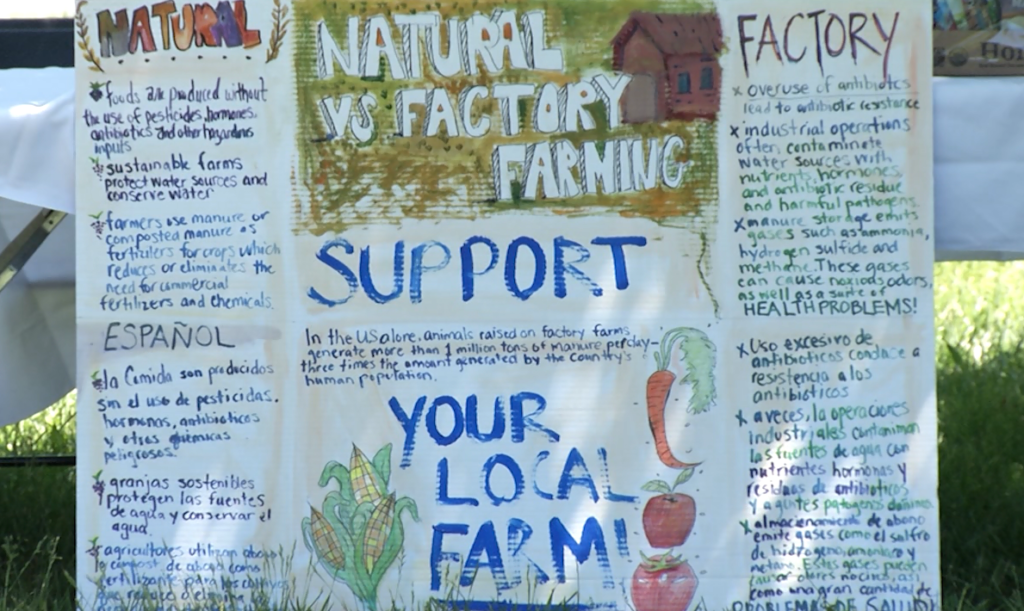 NATURAL
foods are produced without
the use of pesticides, hormones,
antibiotics and other hazardous
inputs
sustainable farms
protect water sources and
conserve water
farmers use manure or
composted manure as
fertilizers for crops which
reduces or eliminates the
need for commercial
fertilizers and chemicals.
ESPAÑOL
la Comida son producidos
sin el uso de pesticidas,
hormonas, antibioticos
y otros químicas
peligrosos.
granjas sostenibles
protegen las fuentes
de agua y conservar el
agua
agricultores utilizan abono
o compost de abono como
fertilizante para los cultivos
NATURAL
VS FACTORY
FARMING
SUPPORT
In the US alone, animals raised on factory farms
generate more than 1 million tons of manure per day—
three times the amount generated by the country's
human population.
YOUR
LOCAL
FARM!
FACTORY
x overuse of antibiotics
lead to antibiotic resistance
x industrial operations
often contaminate
water sources with
nutrients, hormones,
and antibiotic residue
and harmful pathogens.
x manure storage emits
gases such as ammonia,
hydrogen sulfide and
methane. These gases
can cause noxious odors,
as well as a suite of
HEALTH PROBLEMS!
x Uso excesivo de
antibioticos conduce a
resistencia a los
antibioticos
x a veces, la operaciones
industriales contaminan
las fuentes de agua con
nutrientes hormonas y
residuos de antibioticos
y agentes patogenos
x almacenamiento de abono
emite gases como el sulfro
de hidrogeno, amoniaro y
metano. Estes gases pueden
causar olores nocivos, asi
como una gran cantidad de
PROBLEMAS DE